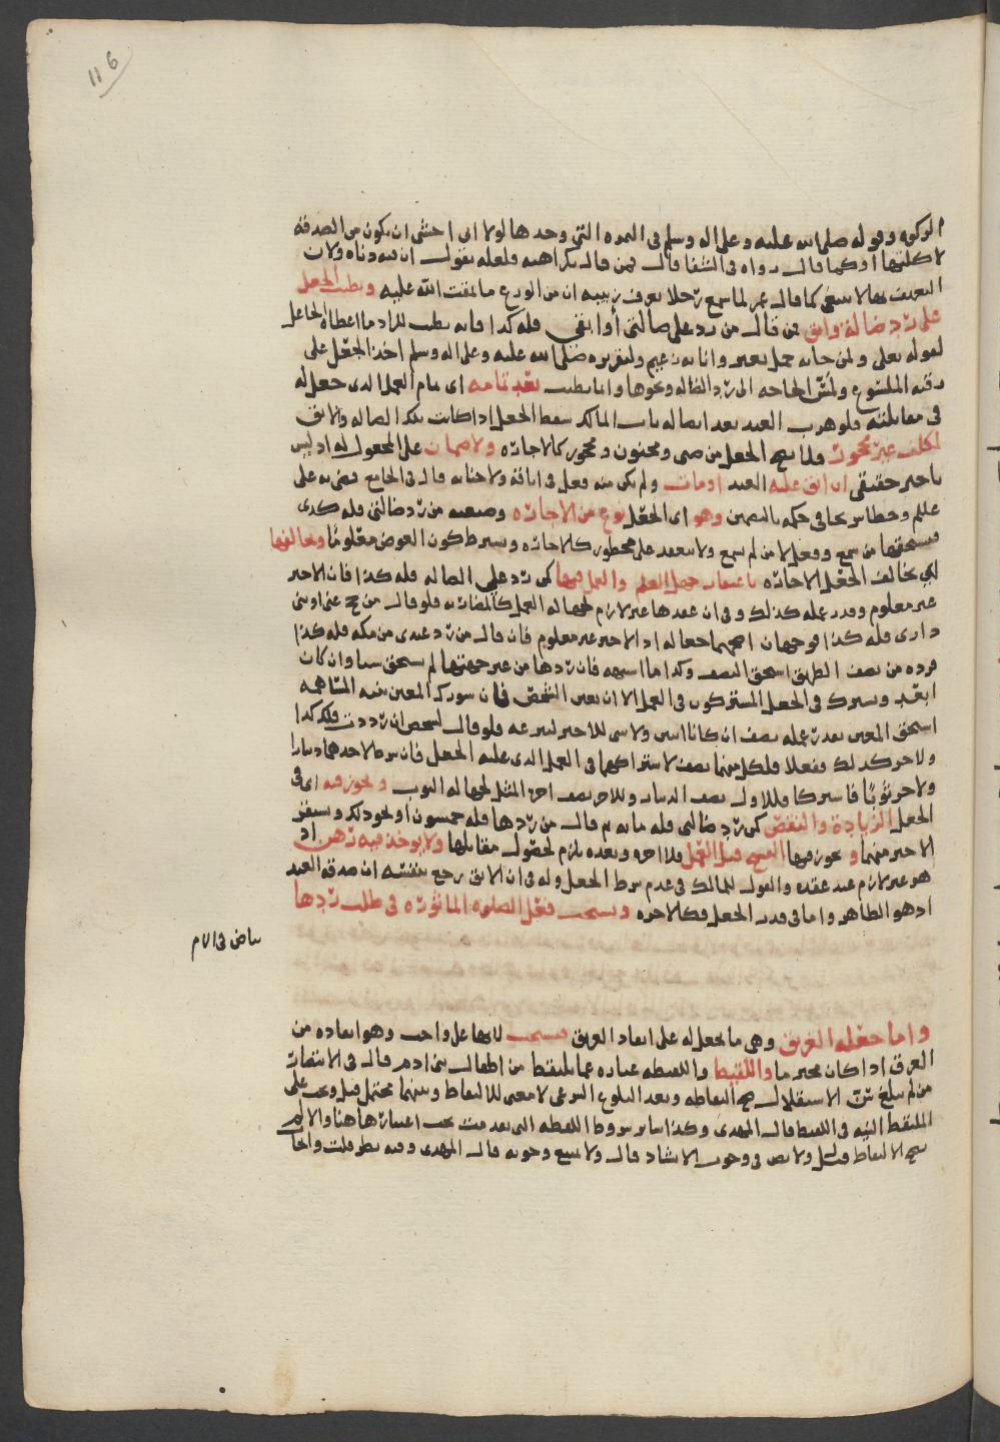 116
الزكوه وقوله صلى الله عليه وعلى اله وسلم فى التمره التى وجدها لولا انى اخشى ان تكون من الصدقه
لاكلتها او كما قال رواه فى الشفا قال فمن قال بكراهته فلعله يقول ان فيه دناه ولان
التعريف بها لا ينبغى كما قال عمر لما سمع رجلا يعرف زبيبه ان من الورع ما يمقت الله عليه ويطيب الجعل
على رد ضالة وابق فمن قال من رد على ضالتى أوابقى فله كذا فانه يطيب للراد ما اعطاه الجاعل
لقوله تعلى ولمن جا به حمل بعير وانا به زعيم ولتقريره صلى الله عليه وعلى اله وسلم اخذ الجعل على
رقيه الملسوع ولمسّ الحاجه الى رد الضاله ونحوها وانما يطيب بعد تمامه اى تمام العمل الذى جعل له
فى مقابلته فلو هرب العبد بعد ايصاله باب المالك سقط الجعل اذا كانت تلك الضاله والابق
لمكلف غير محجور فلا يصح الجعل من صبى ومجنون ومحجور كالاجاره ولا ضمان على المجعول له اذ ليس
باجير حقيقى ان ابق عليه العبد اومات ولم يكن منه فعل فى اباقه ولا جنايه قال فى الجامع
وهو اى الجعل نوع من الاجاره وصيغته من رد ضالتى فله كذى
فيستحقها من سمع وفعل لا من لم يسمع ولا ينعقد على محظور كالاجاره ويشترط كون العوض معلومًا ويخالفها
اي يخالف الجعل الاجاره باعتبار جهل العلم والعمل فيها كمن رد على الضاله فله كذا فان الاجير
غير معلوم وقدر عمله كذلك وفى ان عقدها غير لازم لجهاله العمل كالمضاربه فلو قال من حج عنى او بنى
دارى فله كذا فوجهان اصحهما جعاله اذ الاجير غير معلوم فان قال من رد عبدى من مكه فله كذا
فرده من نصف الطريق استحق النصف وكذا ما اشبهه فان ردها من غير جهتها لم يستحق شيا وان كان
ابعد ويشترك فى الجعل المشتركون فى العمل الا ان يعين الشخص فان شورك المعين
استحق المعين بقدر عمله نصف ان كانا اثنين ولا شى للاخير لتبرعه فلو قال لشخص ان رددت فلك كذا
ولاخر كذلك ففعلا فلكل منهما نصف لاشتراكهما فى العمل الذى عليه الجعل فان شرط لاحدهما دينارا
ولاخر ثوبًا فاشتركا فللاول نصف الدينار وللاخر نصف اجره المثل لجهاله الثوب ويجوز فيه اى فى
الجعل الزيادة والنقص كمن رد ضالتى فله مايه ثم قال من ردها فله خمسون او نحو ذلك ويستقر
الاخير منهما ويجوز فيها الفسخ قبل العمل فلا اجره وبعده يلزم لحصول مقابلها ولا يوخذ فيه رهن اذ
هو غير لازم عند عقده والقول للمالك فى عدم شرط الجعل وله فى ان الابق رجع بنفسه ان صدقه العبد
اذ هو الظاهر واما فى قدر الجعل فكالاجره ويستحب فعل الصلوه الماثوره فى طلب ردها
بياض فى الام
واما جعلها لغريق وهى ما يجعل له على انقاذ الغريق فيستحب لانها على واجب وهو انقاذه من
الغرق اذا كان محترما واللقيط واللقطه عباره عما يلتقط من اطفال بنى ادم قال فى الانتصار
من لم يبلغ سن الاستقلال صح التقاطه وبعد البلوغ الشرعى لا معنى للالتقاط وبينهما محتمل قيل ويجب على
الملتقط النيه فى اللقيط قال المهدى وكذا ساير شروط اللقطه التى تقدمت يجب اعتبارها هنا والا لم
يصح الالتقاط قيل ولا نص فى وجوب الاشهاد قال ولا يبعد وجوبه قال المهدى وفيه نظر قلت